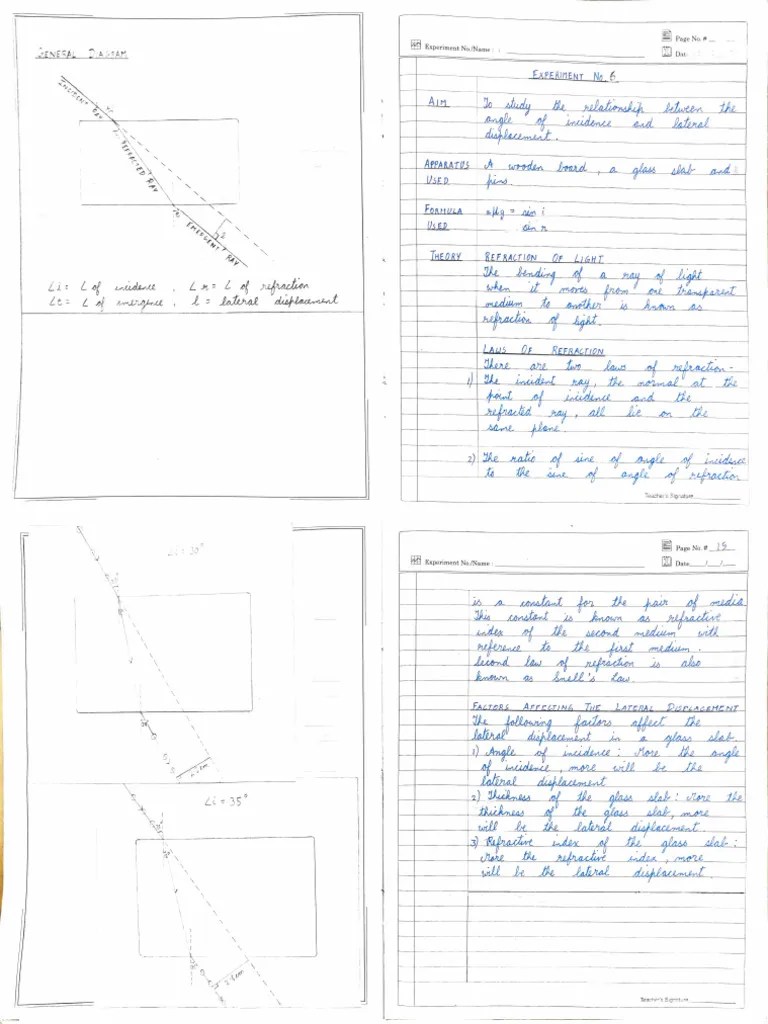 GENERAL DIAGRAM
INCIDENT RAY
REFRACTED RAY
EMERGENT RAY
∠i = ∠ of incidence , ∠r = ∠ of refraction
∠e = ∠ of emergence , l = lateral displacement
Page No. #
Experiment No./Name :
Date
EXPERIMENT NO. 6
AIM
To study the relationship between the
angle of incidence and lateral
displacement.
APPARATUS USED
A wooden board , a glass slab and
pins.
FORMULA USED
= sin i
sin r
THEORY
REFRACTION OF LIGHT
The bending of a ray of light
when it moves from one transparent
medium to another is known as
refraction of light.
LAWS OF REFRACTION
There are two laws of refraction-
1) The incident ray, the normal at the
point of incidence and the
refracted ray, all lie on the
same plane.
2) The ratio of sine of angle of incidence
to the sine of angle of refraction
Teacher's Signature
∠i = 35°
Page No. # 15
Experiment No./Name :
Date
is a constant for the pair of media
This constant is known as refractive
index of the second medium with
reference to the first medium.
Second law of refraction is also
known as Snell's Law.
FACTORS AFFECTING THE LATERAL DISPLACEMENT
The following factors affect the
lateral displacement in a glass slab
1) Angle of incidence : More the angle
of incidence , more will be the
lateral displacement
2) Thickness of the glass slab : More the
thickness of the glass slab, more
will be the lateral displacement.
3) Refractive index of the glass slab :
More the refractive index , more
will be the lateral displacement.
Teacher's Signature